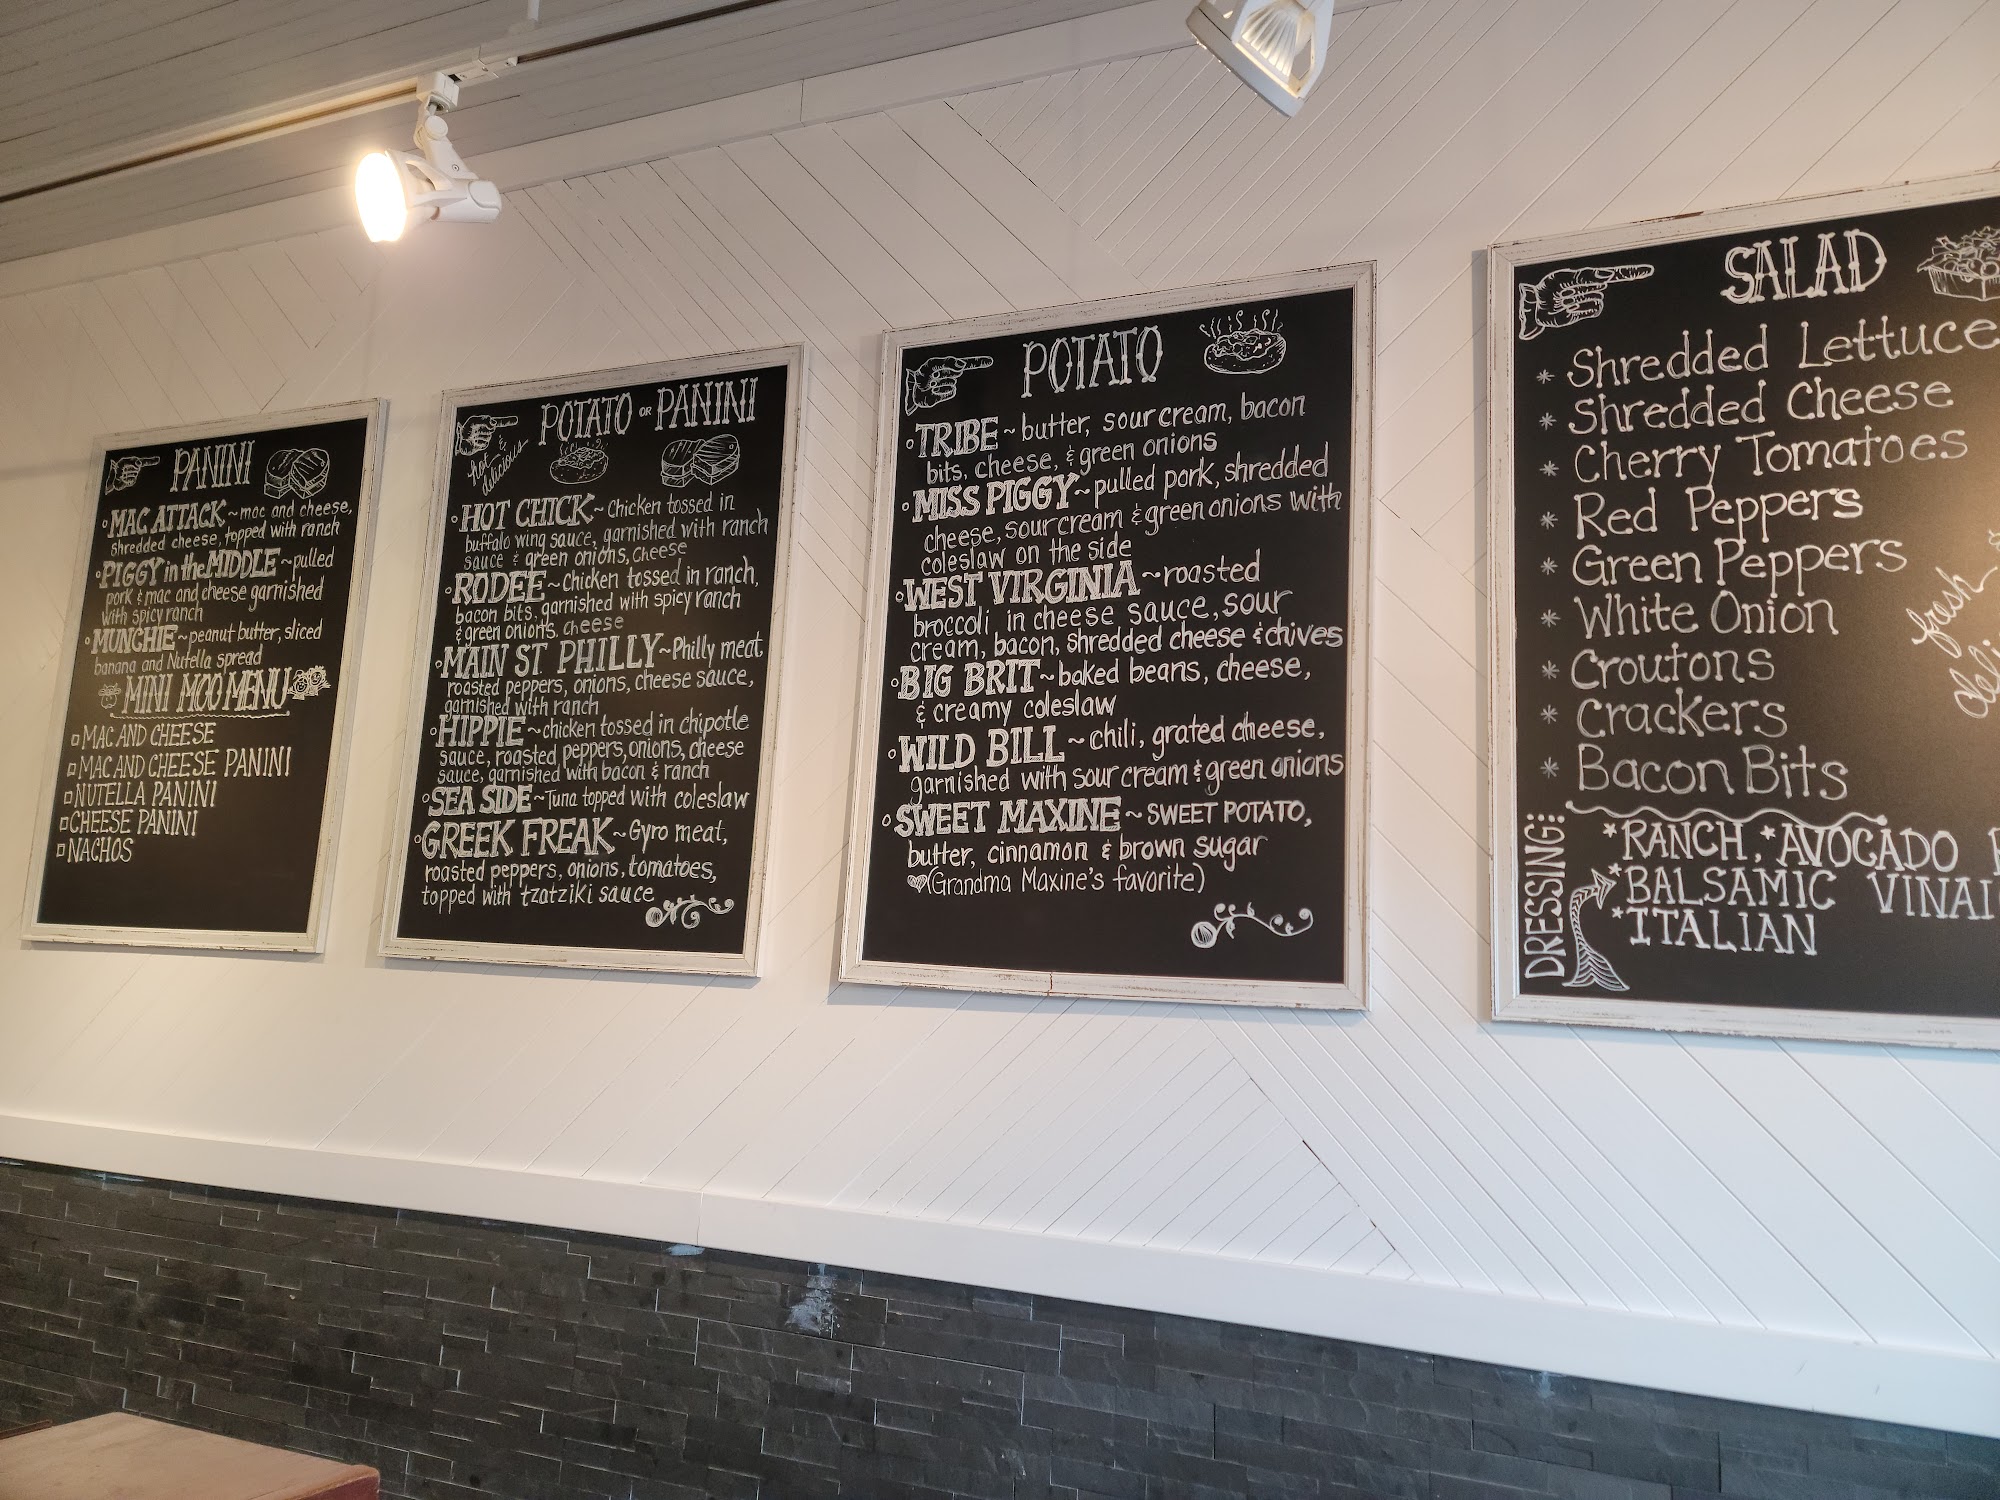 PANINI
◦MAC ATTACK~mac and cheese,
shredded cheese, topped with ranch
◦PIGGY in the MIDDLE~pulled
pork & mac and cheese garnished
with spicy ranch
◦MUNCHIE~peanut butter, sliced
banana and Nutella spread
MINI MOO MENU
MAC AND CHEESE
MAC AND CHEESE PANINI
NUTELLA PANINI
CHEESE PANINI
NACHOS
POTATO OR PANINI
hot &
delicious
◦HOT CHICK~Chicken tossed in
buffalo wing sauce, garnished with ranch
sauce & green onions, cheese
◦RODEE~chicken tossed in ranch,
bacon bits, garnished with spicy ranch
& green onions, cheese
◦MAIN ST PHILLY~Philly meat,
roasted peppers, onions, cheese sauce,
garnished with ranch
◦HIPPIE~chicken tossed in chipotle
sauce, roasted peppers, onions, cheese
sauce, garnished with bacon & ranch
◦SEA SIDE~Tuna topped with coleslaw
◦GREEK FREAK~Gyro meat,
roasted peppers, onions, tomatoes,
topped with tzatziki sauce
POTATO
◦TRIBE~butter, sour cream, bacon
bits, cheese, & green onions
◦MISS PIGGY~pulled pork, shredded
cheese, sour cream & green onions with
coleslaw on the side
◦WEST VIRGINIA~roasted
broccoli in cheese sauce, sour
cream, bacon, shredded cheese & chives
◦BIG BRIT~baked beans, cheese,
& creamy coleslaw
◦WILD BILL~chili, grated cheese,
garnished with sour cream & green onions
◦SWEET MAXINE~SWEET POTATO,
butter, cinnamon & brown sugar
(Grandma Maxine's favorite)
SALAD
* Shredded Lettuce
* Shredded Cheese
* Cherry Tomatoes
* Red Peppers
* Green Peppers
* White Onion
* Croutons
* Crackers
* Bacon Bits
fresh
DRESSING:
*RANCH, *AVOCADO
*BALSAMIC
*ITALIAN